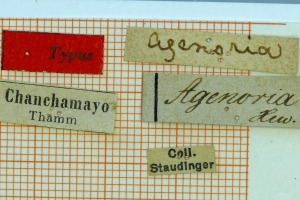 Typus
Agenoria
Chanchamayo
Thamm
Agenoria
Hew.
Coll.
Staudinger